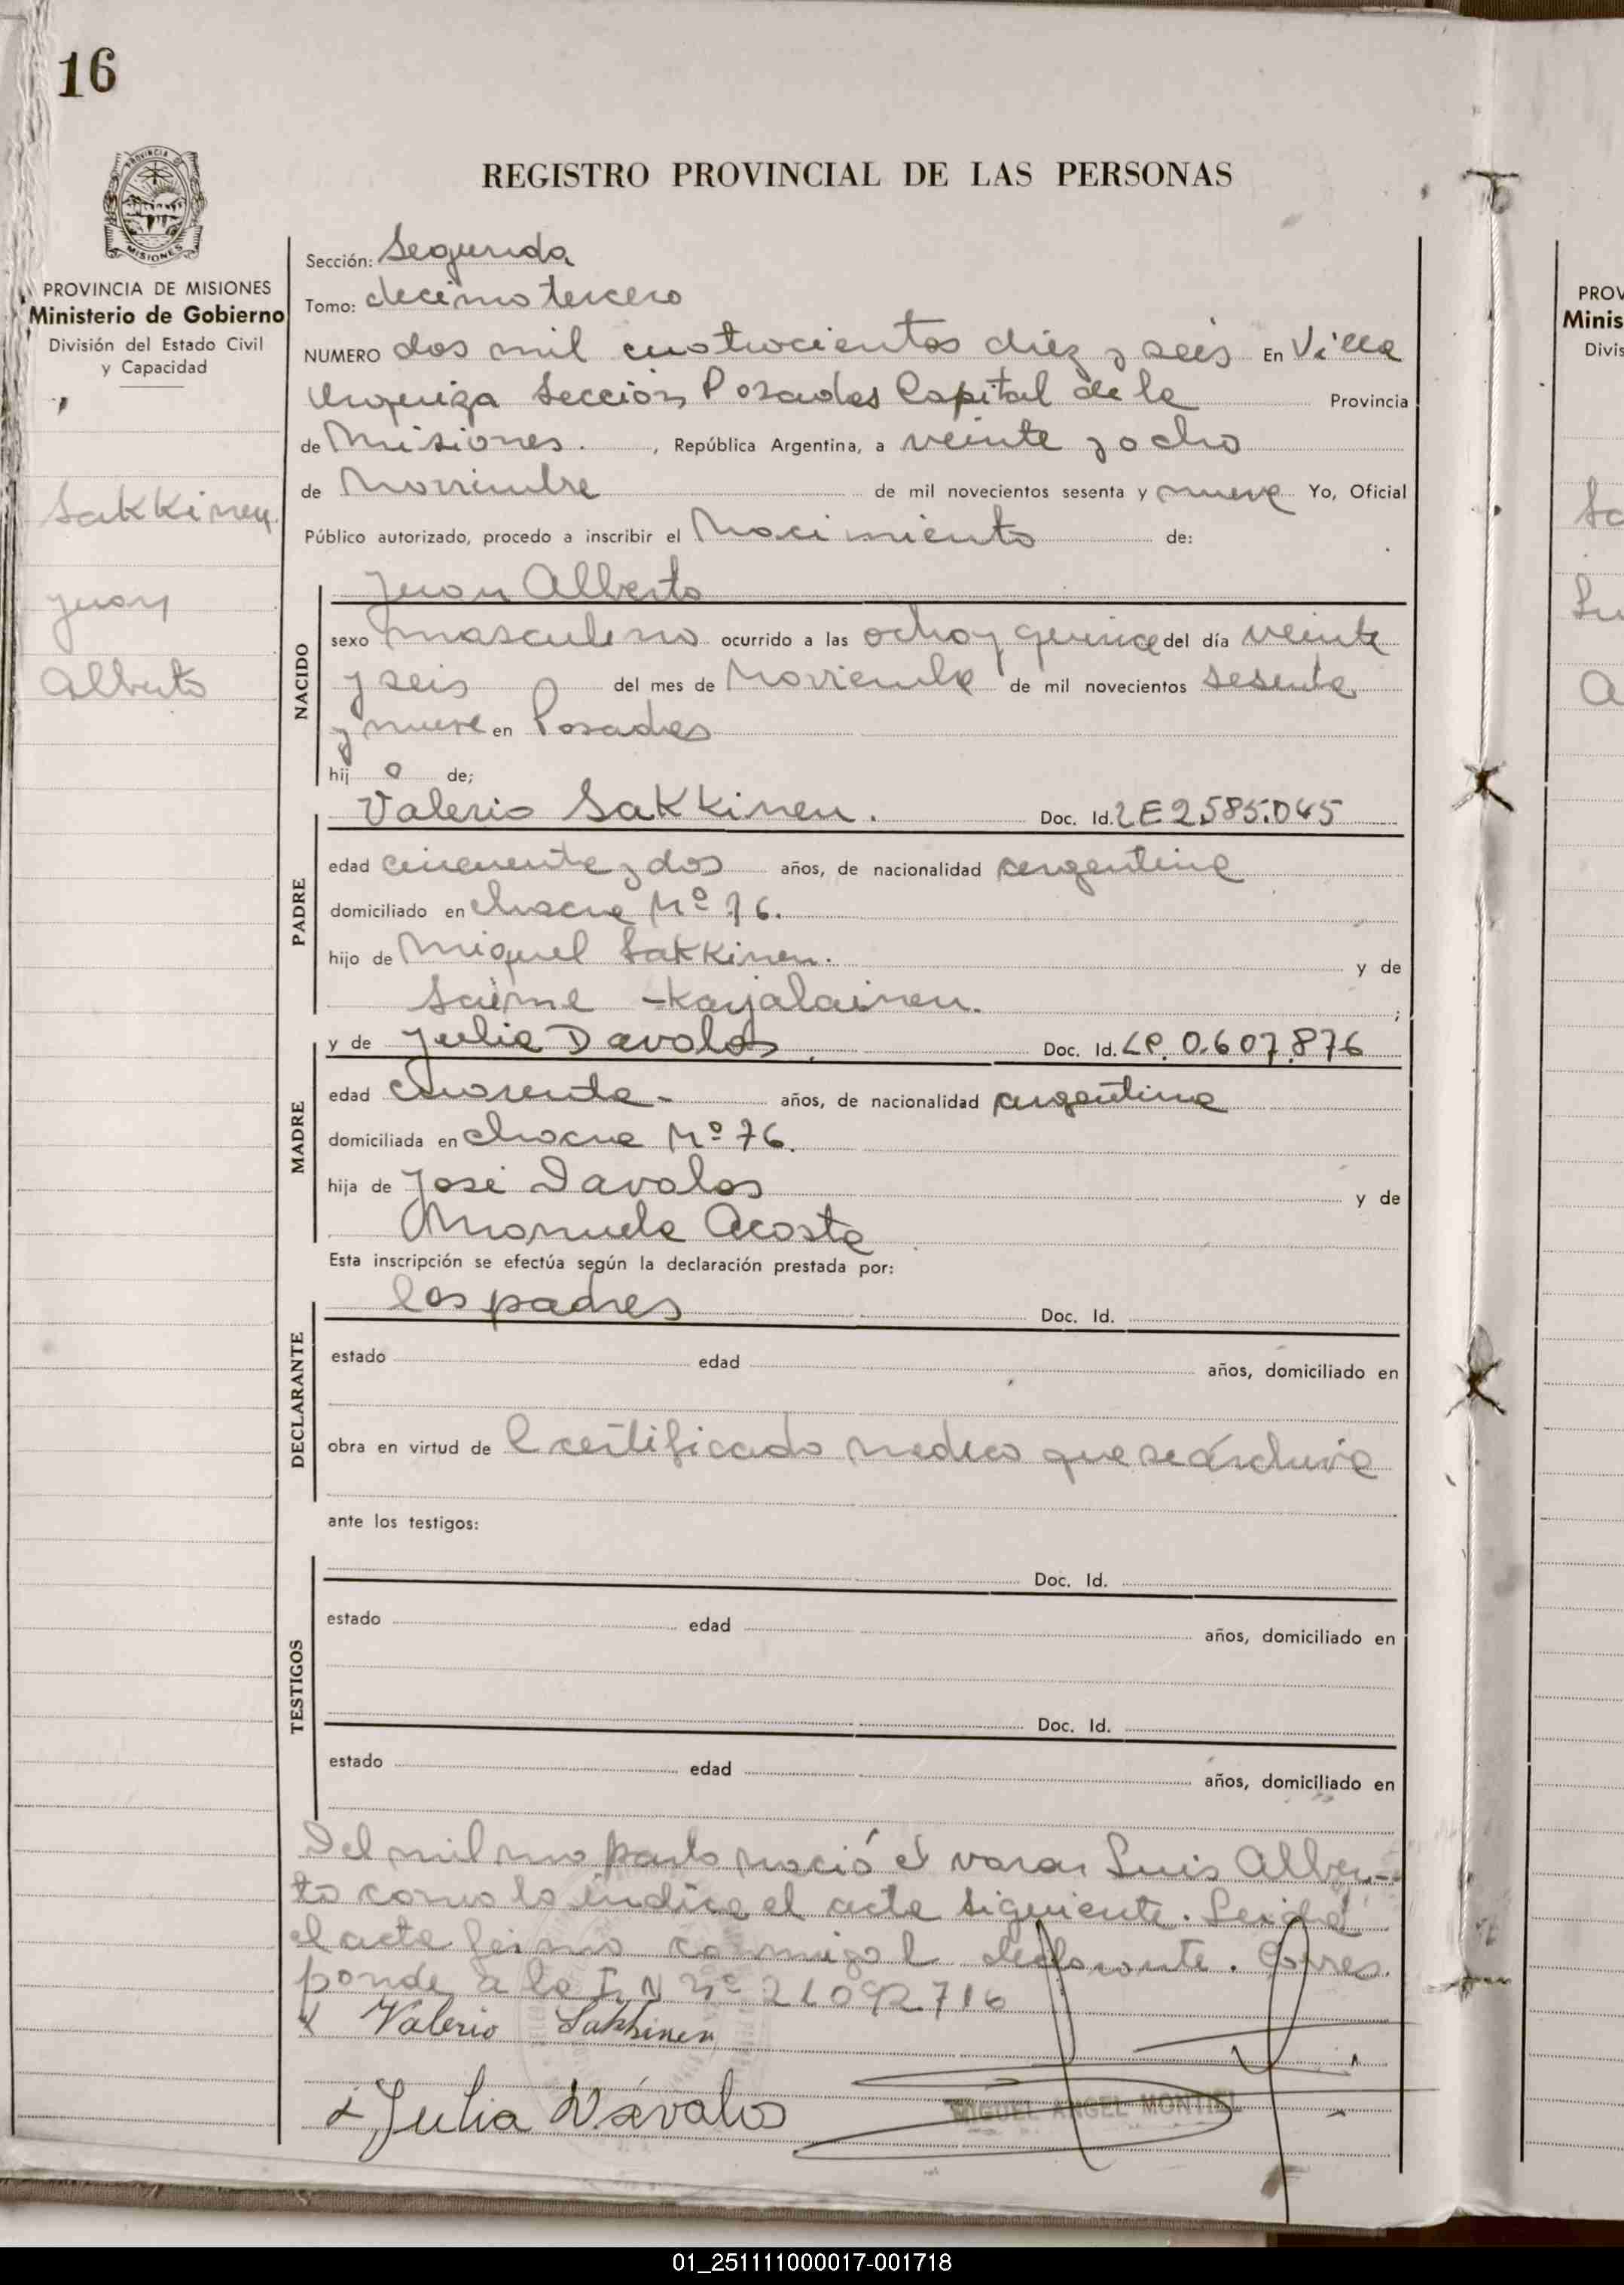 16
REGISTRO PROVINCIAL DE LAS PERSONAS
PROVINCIA DE MISIONES
Ministerio de Gobierno
División del Estado Civil
y Capacidad
Sakkinen
Juan
Alberto
Sección: Segunda
Tomo: decimo tercero
NUMERO dos mil cuatrocientos diez y seis En Villa
Urquiza Sección Posadas Capital de la Provincia
de Misiones. , República Argentina, a veinte y ocho
de Noviembre de mil novecientos sesenta y nueve Yo, Oficial
Público autorizado, procedo a inscribir el Nacimiento de:
Juan Alberto
NACIDO
sexo masculino ocurrido a las ocho y quince del día veinte
y seis del mes de Noviembre de mil novecientos sesenta
y nueve en Posadas
hij o de;
Valerio Sakkinen. Doc. Id. LE 2.585.045
PADRE
edad cincuenta y dos años, de nacionalidad argentina
domiciliado en chacra Nº 76.
hijo de Miguel Sakkinen. y de
Saime Karjalainen. ;
y de Julia Davalos Doc. Id. LC. 0.607.876
MADRE
edad cuarenta - años, de nacionalidad argentina
domiciliada en chacra Nº 76.
hija de José Davalos y de
Manuela Acosta
Esta inscripción se efectúa según la declaración prestada por:
los padres Doc. Id.
DECLARANTE
estado edad años, domiciliado en
obra en virtud de certificado medico que se archiva
ante los testigos:
Doc. Id.
TESTIGOS
estado edad años, domiciliado en
Doc. Id.
estado edad años, domiciliado en
Del mismo parto nació el varon Luis Alber-
to como lo indica el acta siguiente. Leida
el acta firma conmigo l declarante. Corres
ponde a la I. N nº 21092716
Valerio Sakkinen
Julia Dávalos
MIGUEL ANGEL MONTIEL
01_251111000017-001718